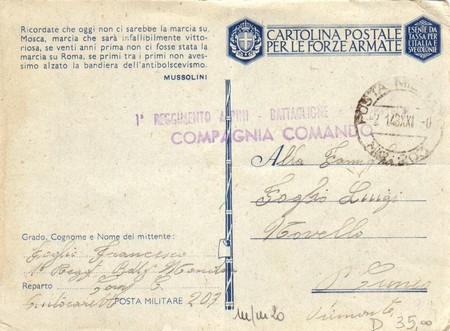 Ricordate che oggi non ci sarebbe la marcia su
Mosca, marcia che sarà infallibilmente vitto-
riosa, se venti anni prima non ci fosse stata la
marcia su Roma, se primi tra i primi non aves-
simo alzato la bandiera dell'antibolscevismo.
MUSSOLINI
CARTOLINA POSTALE
PER LE FORZE ARMATE
ESENTE DA
TASSA PER
L'ITALIA E
SVE COLONIE
1° REGGIMENTO ALPINI - BATTAGLIONE
COMPAGNIA COMANDO
POSTA MILITARE
203
Alla Famiglia
Foglio Luigi
Novello
P. Cuneo
Piemonte
Grado, Cognome e Nome del mittente:
Foglio Francesco
1° Regg. Batt. Mondovì
Reparto
Autocarretto
POSTA MILITARE 203
D 35,00